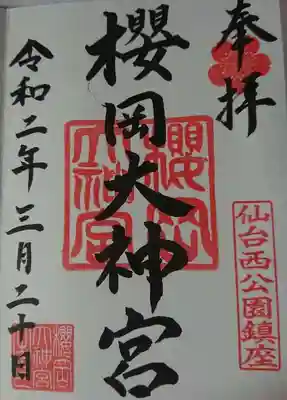 奉拝
仙台西公園鎮座
櫻岡大神宮
櫻岡大神宮
令和二年三月二十日
櫻岡大神宮